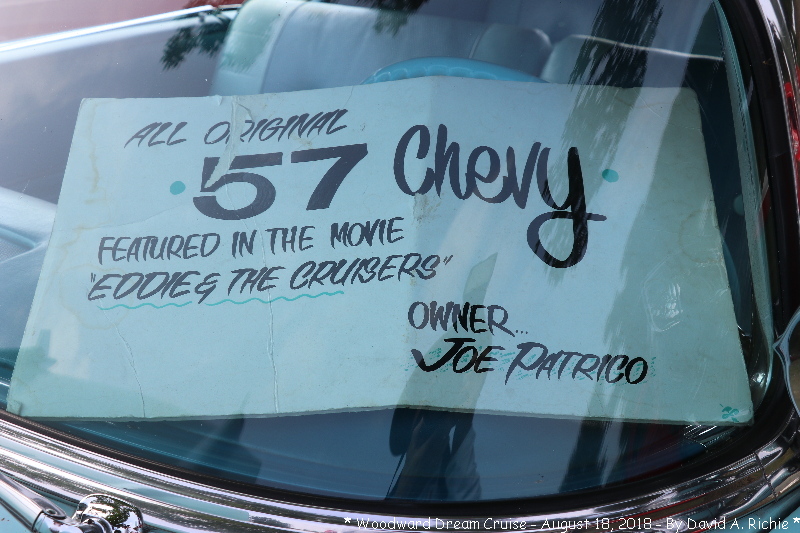 ALL ORIGINAL
'57 Chevy
FEATURED IN THE MOVIE
"EDDIE & THE CRUISERS"
OWNER...
JOE PATRICO
* Woodward Dream Cruise - August 18, 2018 - By David A. Richie *